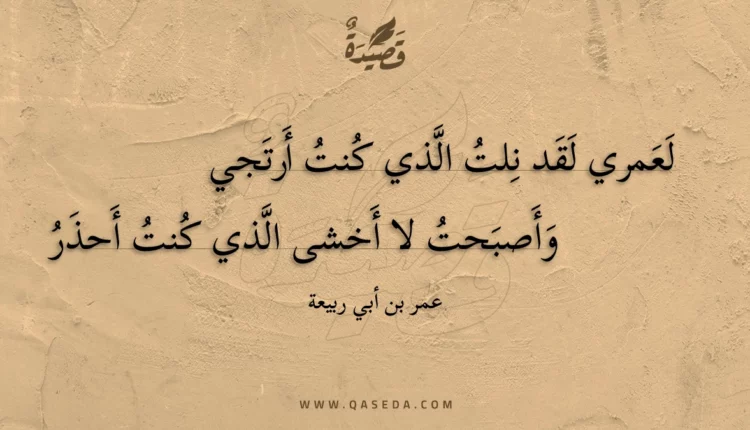 قَصِيْدَةٌ
لَعَمري لَقَد نِلتُ الَّذي كُنتُ أَرتَجي
وَأَصبَحتُ لا أَخشى الَّذي كُنتُ أَحذَرُ
عمر بن أبي ربيعة
WWW.QASEDA.COM